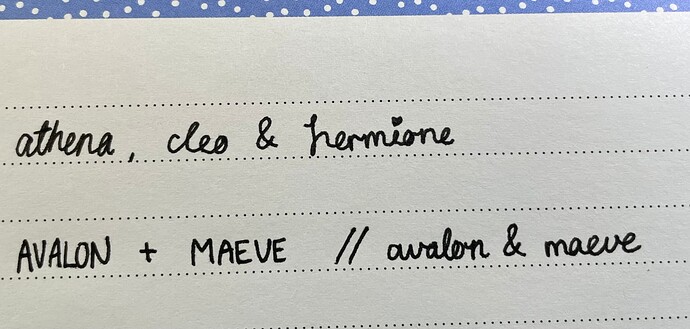 athena, cleo & hermione
AVALON + MAEVE // avalon & maeve